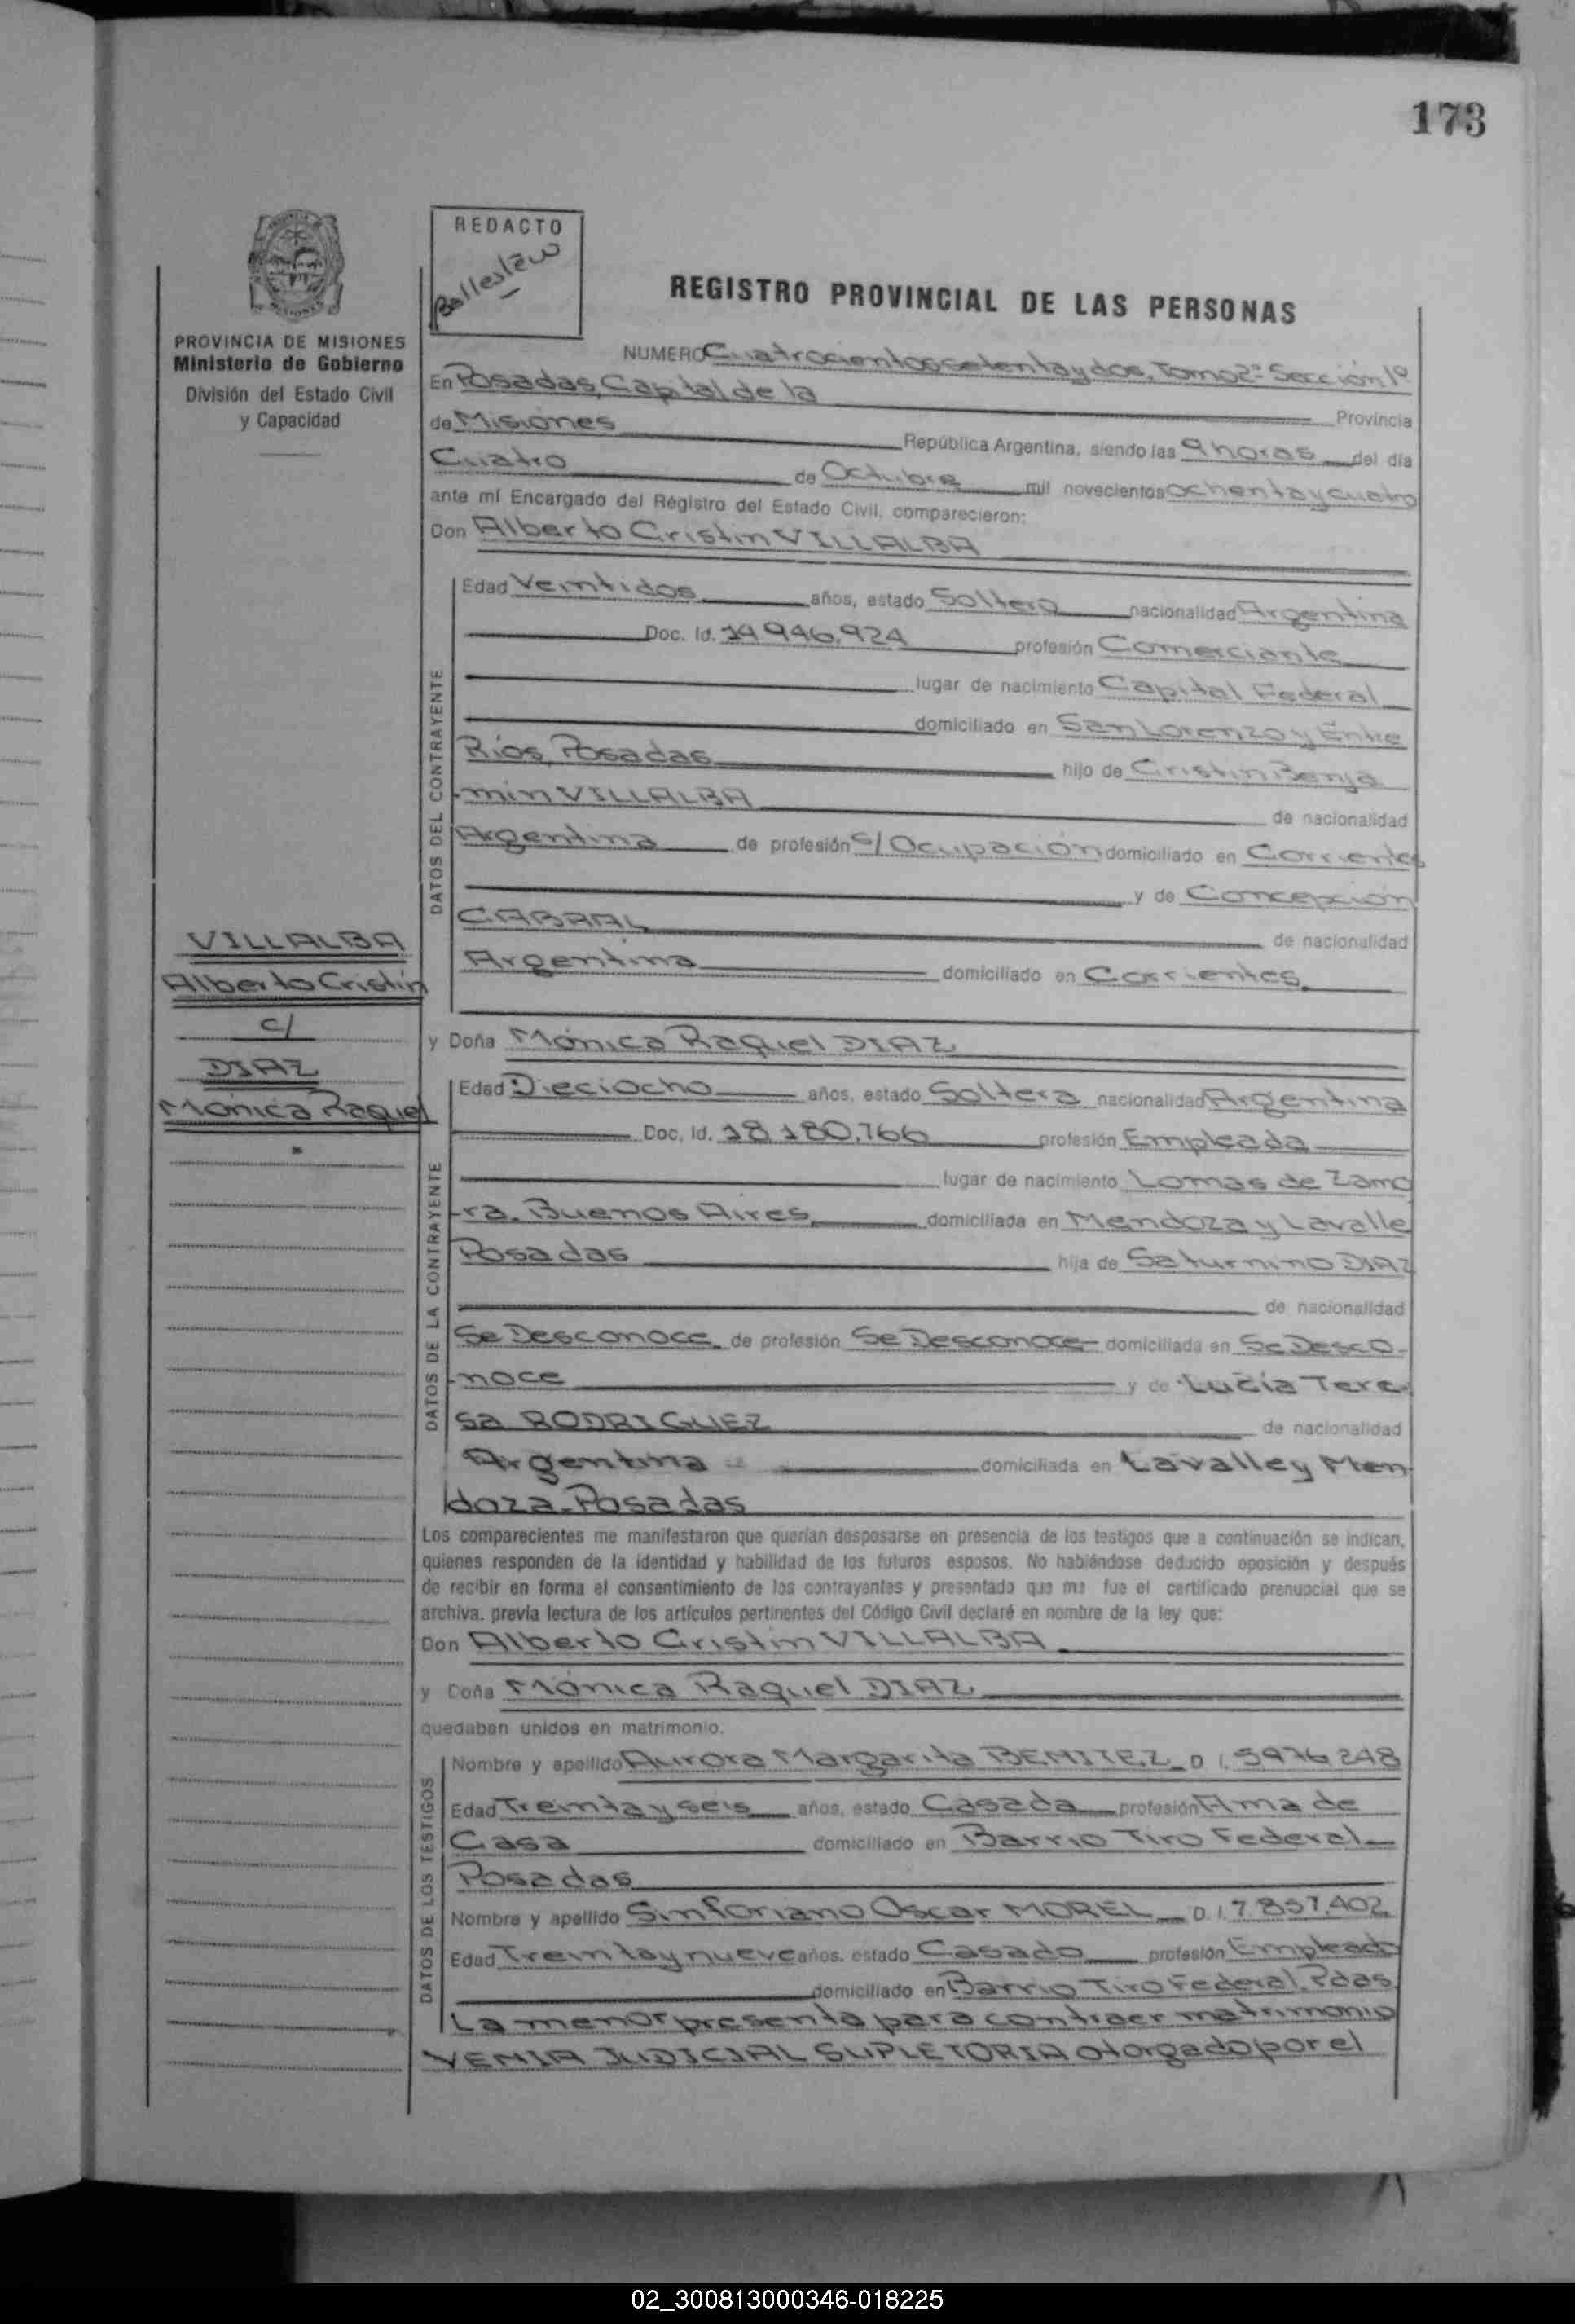 173
REDACTO
Ballesteiw
REGISTRO PROVINCIAL DE LAS PERSONAS
PROVINCIA DE MISIONES
Ministerio de Gobierno
División del Estado Civil
y Capacidad
NUMERO Cuatrocientos setenta y dos. Tomo 2º Sección 1º
En Posadas, Capital de la Provincia
de Misiones República Argentina, siendo las 9 horas del día
Cuatro de Octubre mil novecientos ochenta y cuatro
ante mí Encargado del Registro del Estado Civil, comparecieron:
Don Alberto Cristin VILLALBA
DATOS DEL CONTRAYENTE
Edad Veintidos años, estado Soltero nacionalidad Argentina
Doc. Id. 14 946.924 profesión Comerciante
lugar de nacimiento Capital Federal
domiciliado en San Lorenzo y Entre
Ríos, Posadas hijo de Cristin Benja
-min VILLALBA de nacionalidad
Argentina de profesión s/ Ocupación domiciliado en Corrientes
y de Concepción
CABRAL de nacionalidad
Argentina domiciliado en Corrientes
VILLALBA
Alberto Cristín
c/
DIAZ
Mónica Raquel
y Doña Mónica Raquel DIAZ
DATOS DE LA CONTRAYENTE
Edad Dieciocho años, estado Soltera nacionalidad Argentina
Doc. Id. 18 180.766 profesión Empleada
lugar de nacimiento Lomas de Zamo
-ra. Buenos Aires domiciliada en Mendoza y Lavalle
Posadas hija de Saturnino DIAZ
de nacionalidad
Se Desconoce de profesión Se Desconoce domiciliada en Se Desco-
-noce y de Lucía Tere-
sa RODRIGUEZ de nacionalidad
Argentina domiciliada en Lavalle y Men-
doza-Posadas
Los comparecientes me manifestaron que querían desposarse en presencia de los testigos que a continuación se indican,
quienes responden de la identidad y habilidad de los futuros esposos. No habiéndose deducido oposición y después
de recibir en forma el consentimiento de los contrayentes y presentado que me fue el certificado prenupcial que se
archiva, previa lectura de los artículos pertinentes del Código Civil declaré en nombre de la ley que:
Don Alberto Cristin VILLALBA
y Doña Mónica Raquel DIAZ
quedaban unidos en matrimonio.
DATOS DE LOS TESTIGOS
Nombre y apellido Aurora Margarita BENITEZ D.I. 5976 248
Edad Treinta y seis años, estado Casada profesión Ama de
Casa domiciliado en Barrio Tiro Federal
Posadas
Nombre y apellido Sinforiano Oscar MOREL D.I. 7.857.402
Edad Treinta y nueve años, estado Casado profesión Empleado
domiciliado en Barrio Tiro Federal. Pdas
La menor presenta para contraer matrimonio
VENIA JUDICIAL SUPLETORIA otorgado por el
02_300813000346-018225